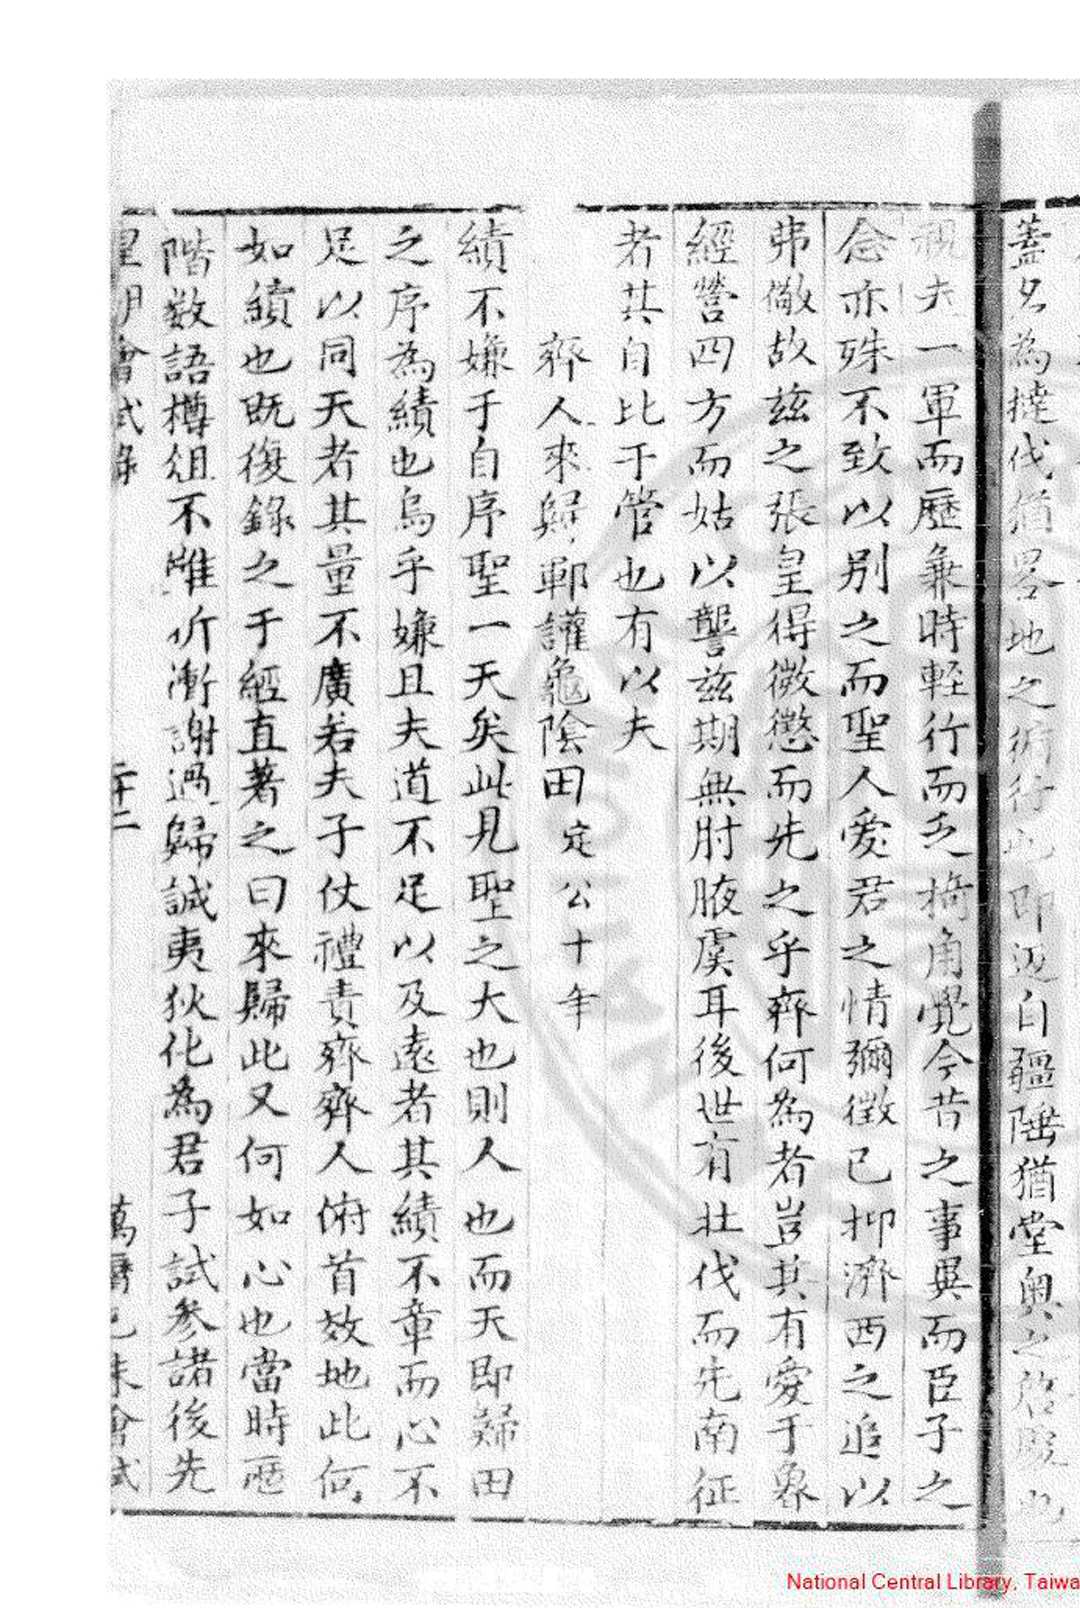 蓋名為撻伐猶畧地之術行也即迩自疆陲猶堂奧之啓也
親夫一軍而歷兼時輕行而乏掎角覺今昔之事異而臣子之
念亦殊不致以别之而聖人愛君之情彌徴已抑濟西之追以
弗儆故茲之張皇得微懲而先之乎齊何為者豈其有愛于象
經營四方而姑以讋茲期無肘腋虞耳後世有壯伐而先南征
者其自比于管也有以夫
齊人來歸鄆讙龜陰田定公十年
績不嫌于自序聖一天矣此見聖之大也則人也而天即歸田
之序為績也烏乎嫌且夫道不足以及遠者其績不章而心不
足以同天者其量不廣若夫子仗禮責齊齊人俯首效地此何
如績也既復錄之于經直著之曰來歸此又何如心也當時壓
階数語樽俎不雎侨慚謝過歸誠夷狄化為君子試參諸後先
皇明會試錄
二十二
萬曆己未會試
National Central Library, Taiwa